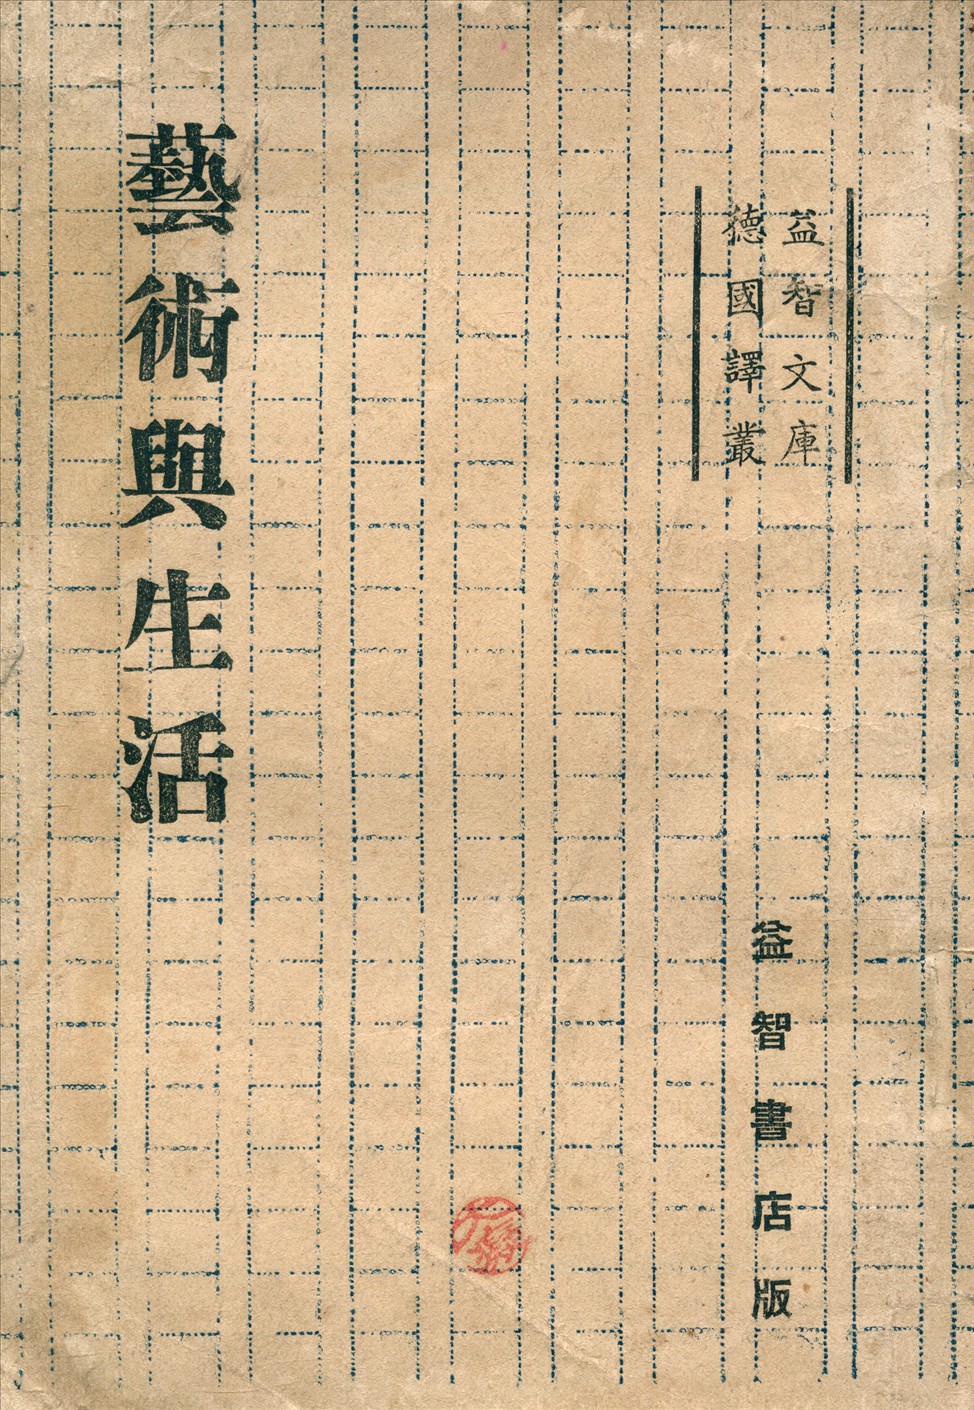 益智文庫
德國譯叢
藝術與生活
益智書店版